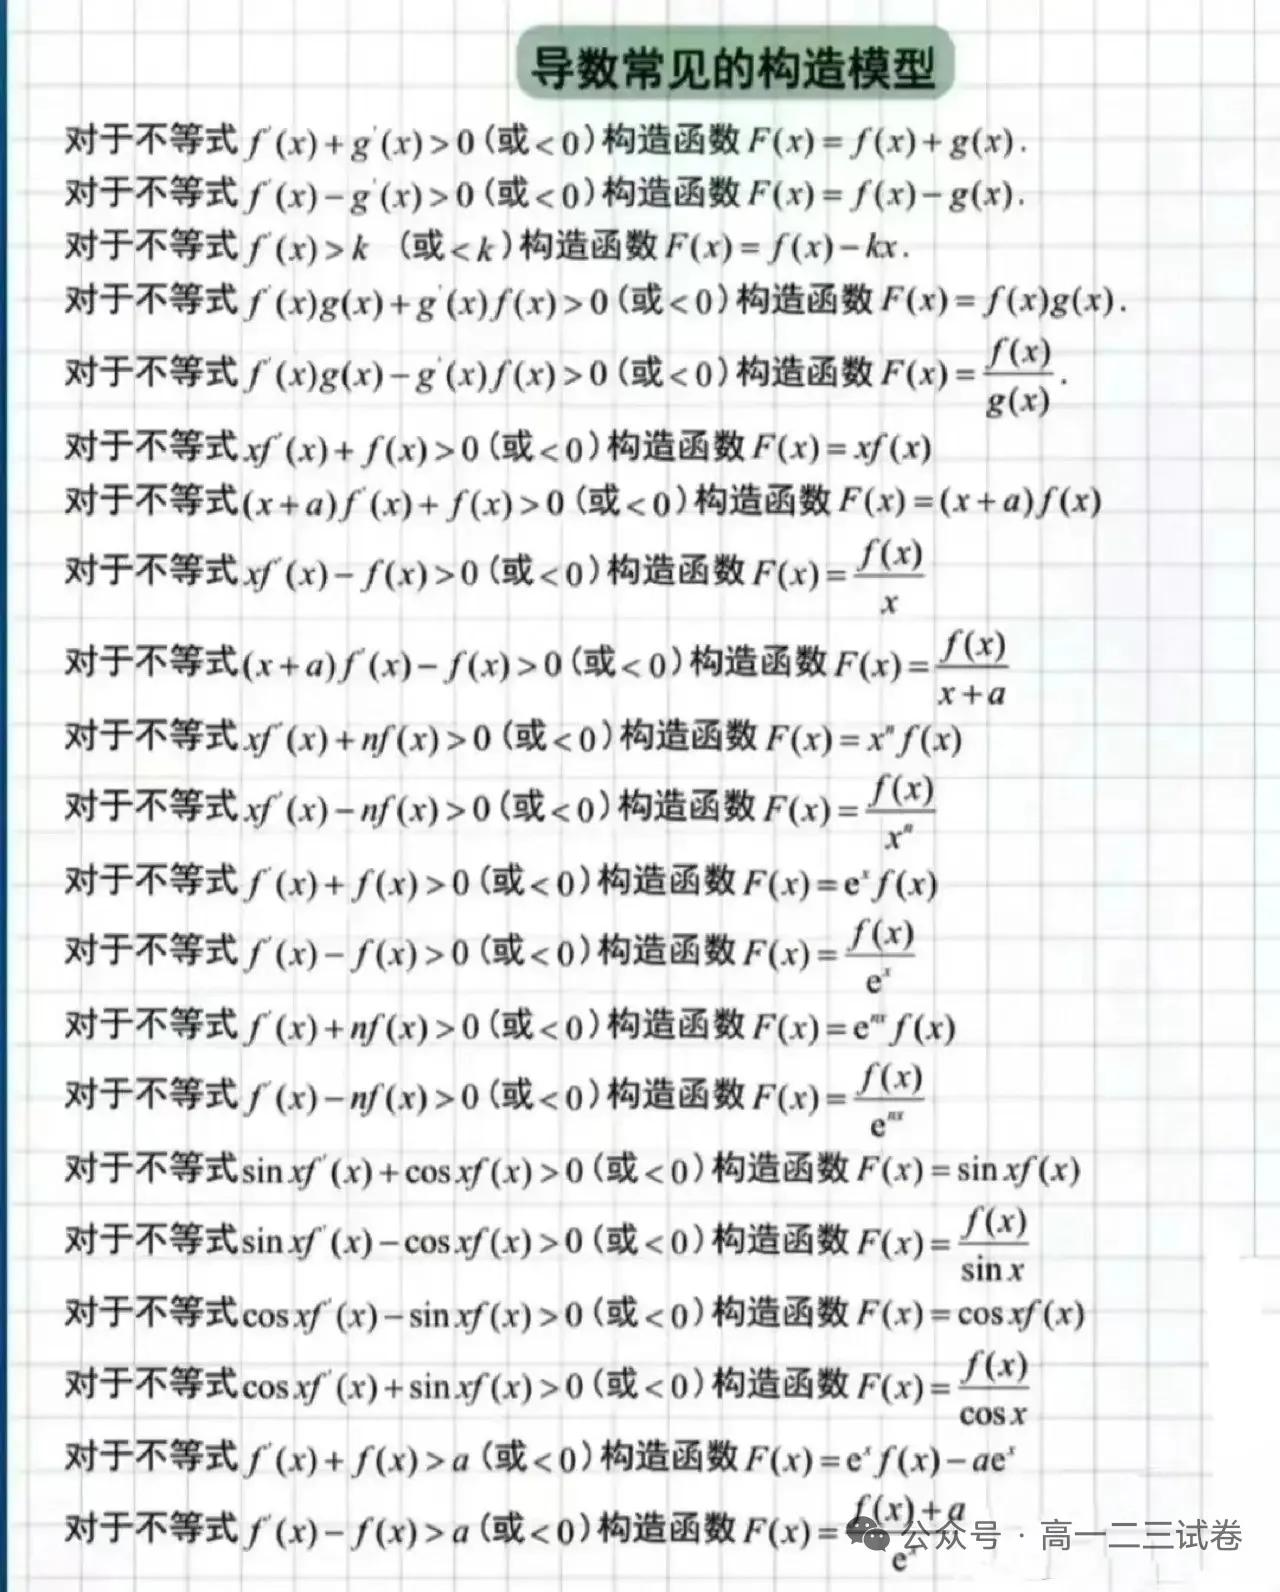 导数常见的构造模型
对于不等式 f'(x)+g'(x)>0(或<0)构造函数 F(x)=f(x)+g(x).
对于不等式 f'(x)-g'(x)>0(或<0)构造函数 F(x)=f(x)-g(x).
对于不等式 f'(x)>k (或<k)构造函数 F(x)=f(x)-kx.
对于不等式 f'(x)g(x)+g'(x)f(x)>0(或<0)构造函数 F(x)=f(x)g(x).
对于不等式 f'(x)g(x)-g'(x)f(x)>0(或<0)构造函数 F(x)=f(x)/g(x).
对于不等式 xf'(x)+f(x)>0(或<0)构造函数 F(x)=xf(x)
对于不等式 (x+a)f'(x)+f(x)>0(或<0)构造函数 F(x)=(x+a)f(x)
对于不等式 xf'(x)-f(x)>0(或<0)构造函数 F(x)=f(x)/x
对于不等式 (x+a)f'(x)-f(x)>0(或<0)构造函数 F(x)=f(x)/(x+a)
对于不等式 xf'(x)+nf(x)>0(或<0)构造函数 F(x)=x^n f(x)
对于不等式 xf'(x)-nf(x)>0(或<0)构造函数 F(x)=f(x)/x^n
对于不等式 f'(x)+f(x)>0(或<0)构造函数 F(x)=e^x f(x)
对于不等式 f'(x)-f(x)>0(或<0)构造函数 F(x)=f(x)/e^x
对于不等式 f'(x)+nf(x)>0(或<0)构造函数 F(x)=e^{nx} f(x)
对于不等式 f'(x)-nf(x)>0(或<0)构造函数 F(x)=f(x)/e^{nx}
对于不等式 sin xf'(x)+cos xf(x)>0(或<0)构造函数 F(x)=sin xf(x)
对于不等式 sin xf'(x)-cos xf(x)>0(或<0)构造函数 F(x)=f(x)/sin x
对于不等式 cos xf'(x)-sin xf(x)>0(或<0)构造函数 F(x)=cos xf(x)
对于不等式 cos xf'(x)+sin xf(x)>0(或<0)构造函数 F(x)=f(x)/cos x
对于不等式 f'(x)+f(x)>a(或<0)构造函数 F(x)=e^x f(x)-ae^x
对于不等式 f'(x)-f(x)>a(或<0)构造函数 F(x)=(f(x)+a)/e^x
公众号·高一二三试卷